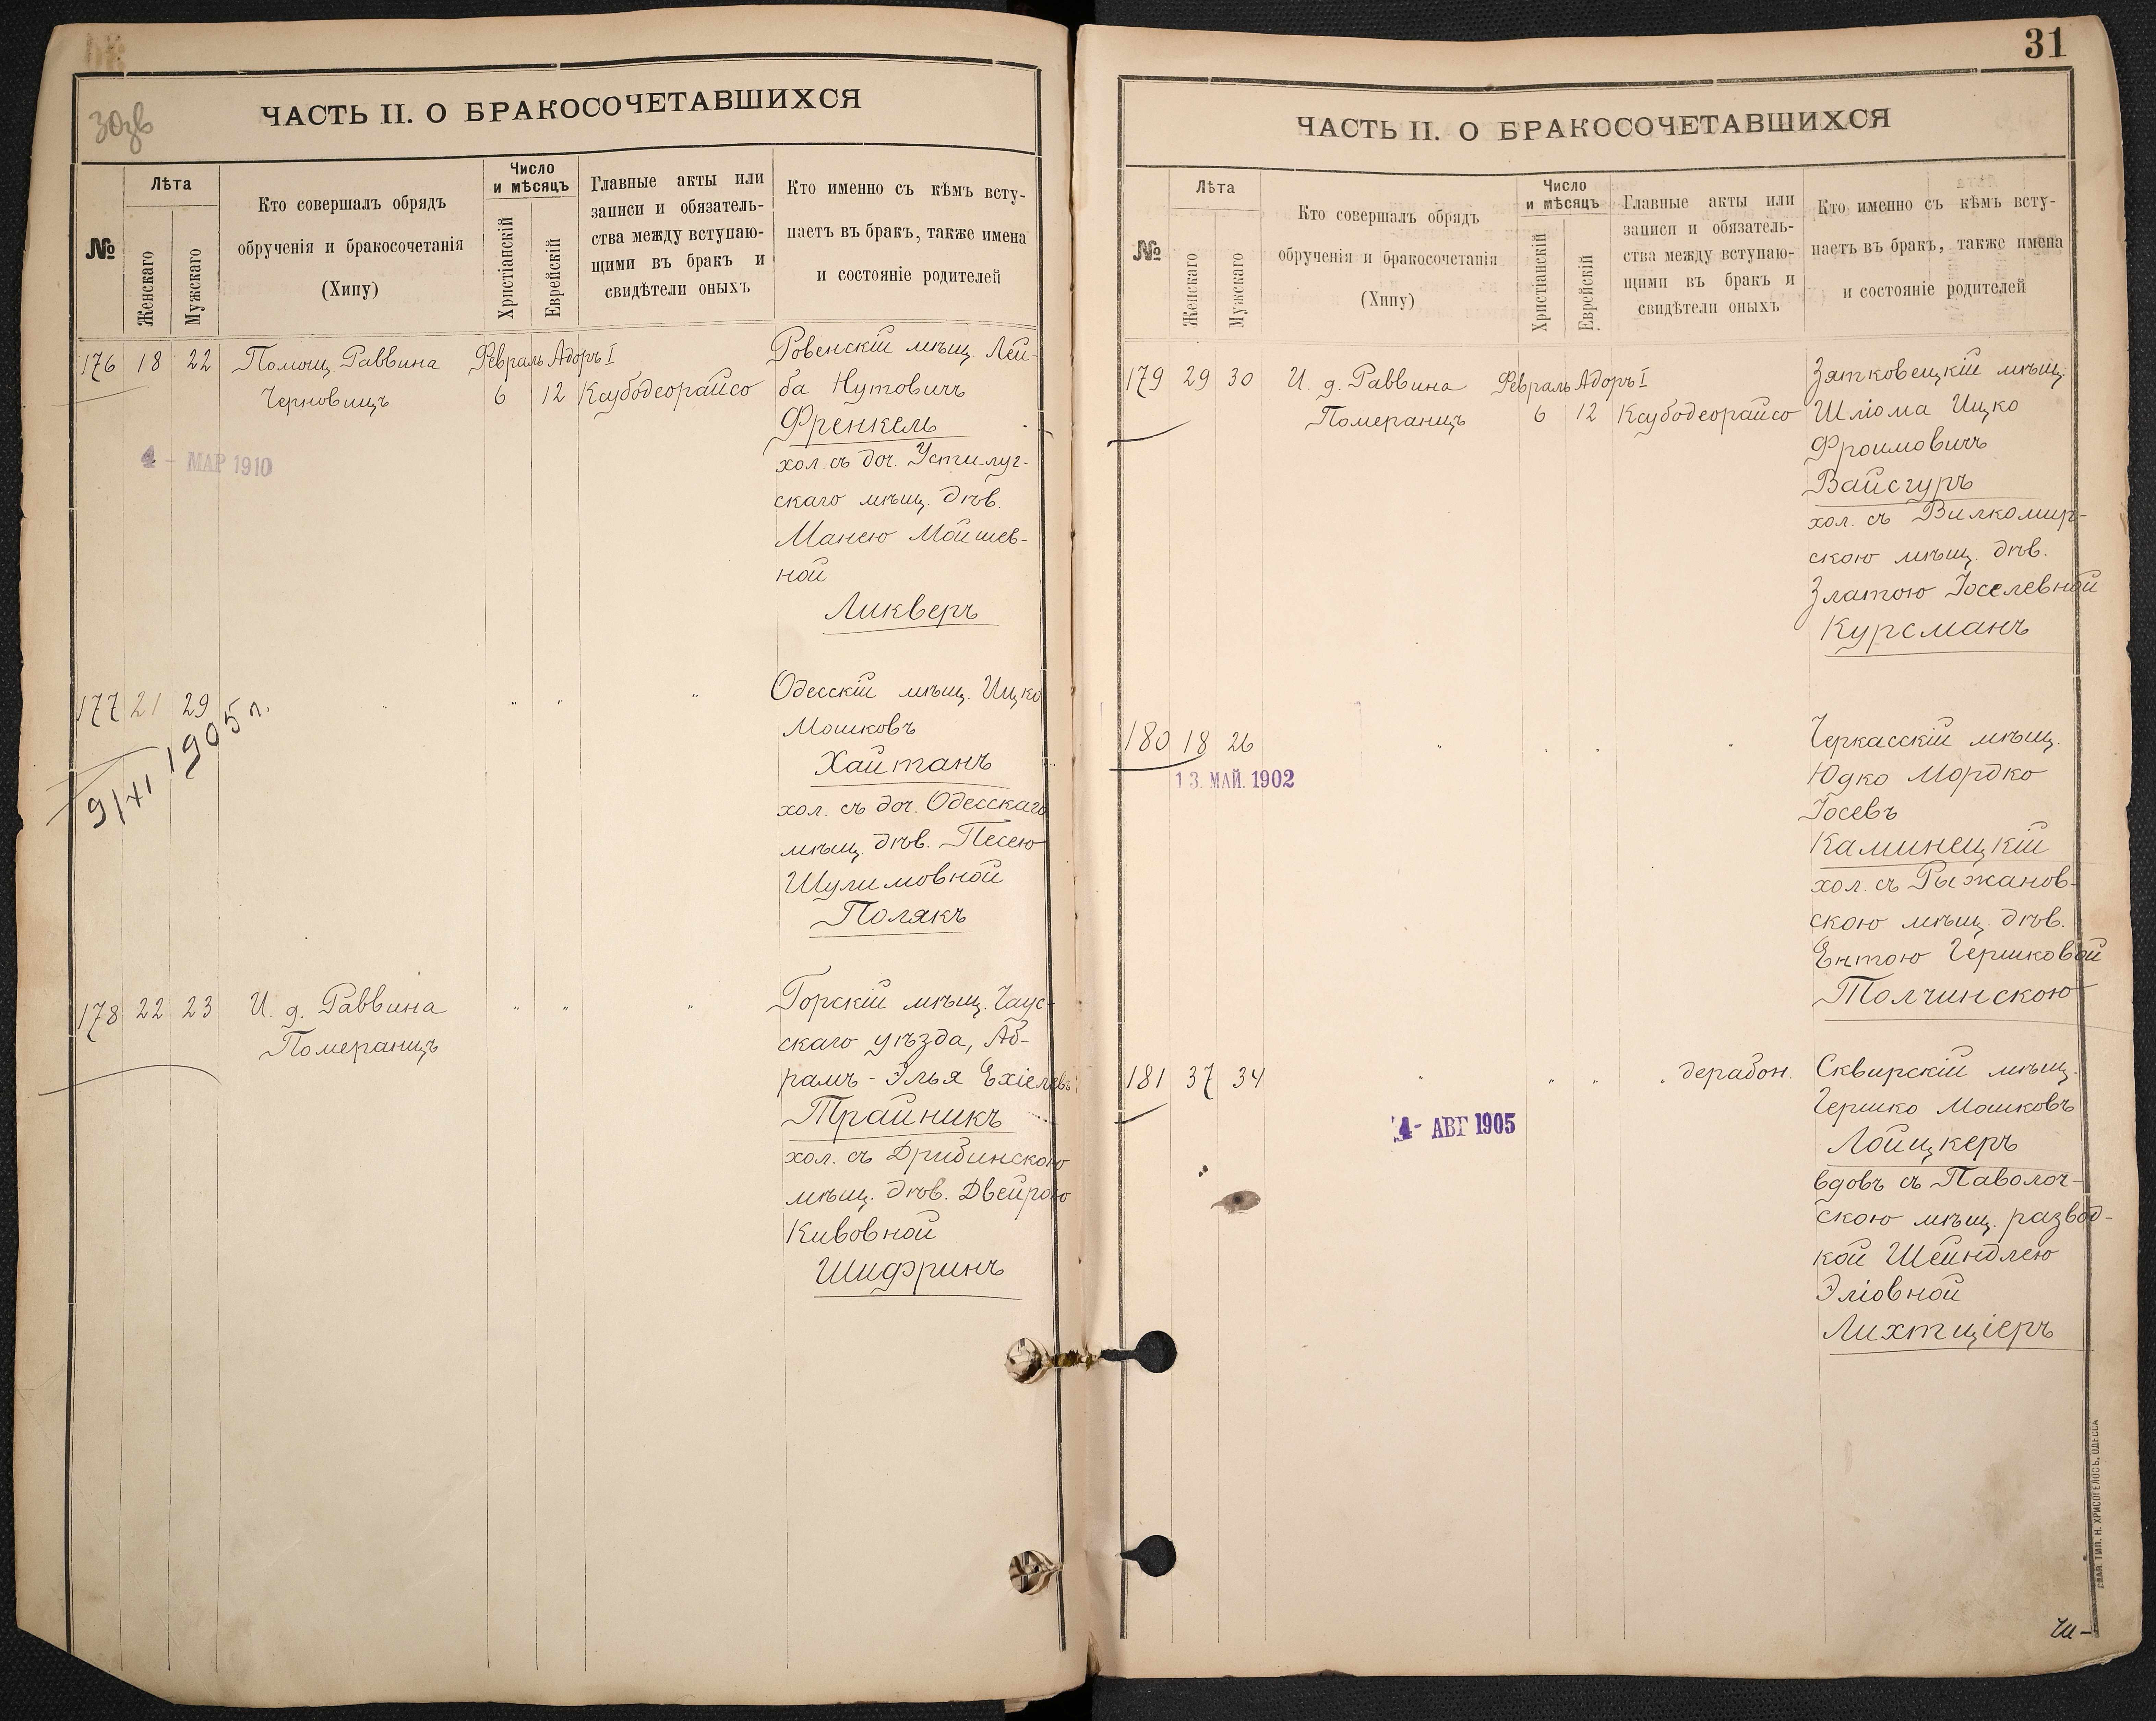 30зв
ЧАСТЬ II. О БРАКОСОЧЕТАВШИХСЯ
№
Лѣта
Женскаго
Мужскаго
Кто совершалъ обрядъ
обрученія и бракосочетанія
(Хипу)
Число
и мѣсяцъ
Христіанскій
Еврейскій
Главные акты или
записи и обязатель-
ства между вступаю-
щими въ бракъ и
свидѣтели оныхъ
Кто именно съ кѣмъ всту-
паетъ въ бракъ, также имена
и состояніе родителей
176 18 22 Помощ. Раввина Февраль Адоръ I Ровенскій мѣщ. Лей-
Черновицъ 6 12 Ксубодеорайсо ба Нутовичъ
Френкель
4 - МАР 1910
хол. съ доч. Устилуг-
скаго мѣщ. дѣв.
Манею Мойшев-
ной
Ликверъ
177 21 29 " " " " Одесскій мѣщ. Ицко
9/XI 1905 г.
Мошковъ
Хайтанъ
хол. съ доч. Одесскаго
мѣщ. дѣв. Песею
Шулимовной
Полякъ
178 22 23 И. д. Раввина " " " Горскій мѣщ. Чаус-
Померанцъ скаго уѣзда, Аб-
рамъ - Элья Ехіелевъ
Трайникъ
хол. съ Дрибинскою
мѣщ. дѣв. Двейрою
Кивовной
Шифринъ
31
ЧАСТЬ II. О БРАКОСОЧЕТАВШИХСЯ
№
Лѣта
Женскаго
Мужскаго
Кто совершалъ обрядъ
обрученія и бракосочетанія
(Хипу)
Число
и мѣсяцъ
Христіанскій
Еврейскій
Главные акты или
записи и обязатель-
ства между вступаю-
щими въ бракъ и
свидѣтели оныхъ
Кто именно съ кѣмъ всту-
паетъ въ бракъ, также имена
и состояніе родителей
179 29 30 И. д. Раввина Февраль Адоръ I Зятковецкій мѣщ.
Померанцъ 6 12 Ксубодеорайсо Шліома Ицко
Фроимовичъ
Вайсгуръ
хол. съ Вилкомир-
скою мѣщ. дѣв.
Златою Іоселевной
Курсманъ
180 18 26 " " " " Черкасскій мѣщ.
13. МАЙ. 1902
Юдко Мордко
Іосевъ
Каминецкій
хол. съ Рыжанов-
скою мѣщ. дѣв.
Ентою Гершковой
Толчинскою
181 37 34 " " " " дерабон. Сквирскій мѣщ.
4 - АВГ 1905
Гершко Мошковъ
Лойцкеръ
вдовъ съ Паволоч-
скою мѣщ. развод-
кой Шейндлею
Эліовной
Лихтціеръ
СЛАВ. ТИП. Н. ХРИСОГЕЛОСЪ, ОДЕССА